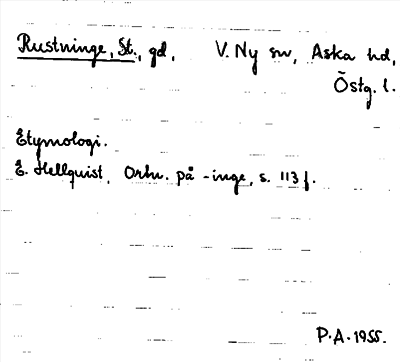 Rustninge, St., gd, V. Ny sn, Aska hd,
Östg. l.
Etymologi.
E. Hellquist, Ortn. på -inge, s. 113 f.
P.A. 1955.